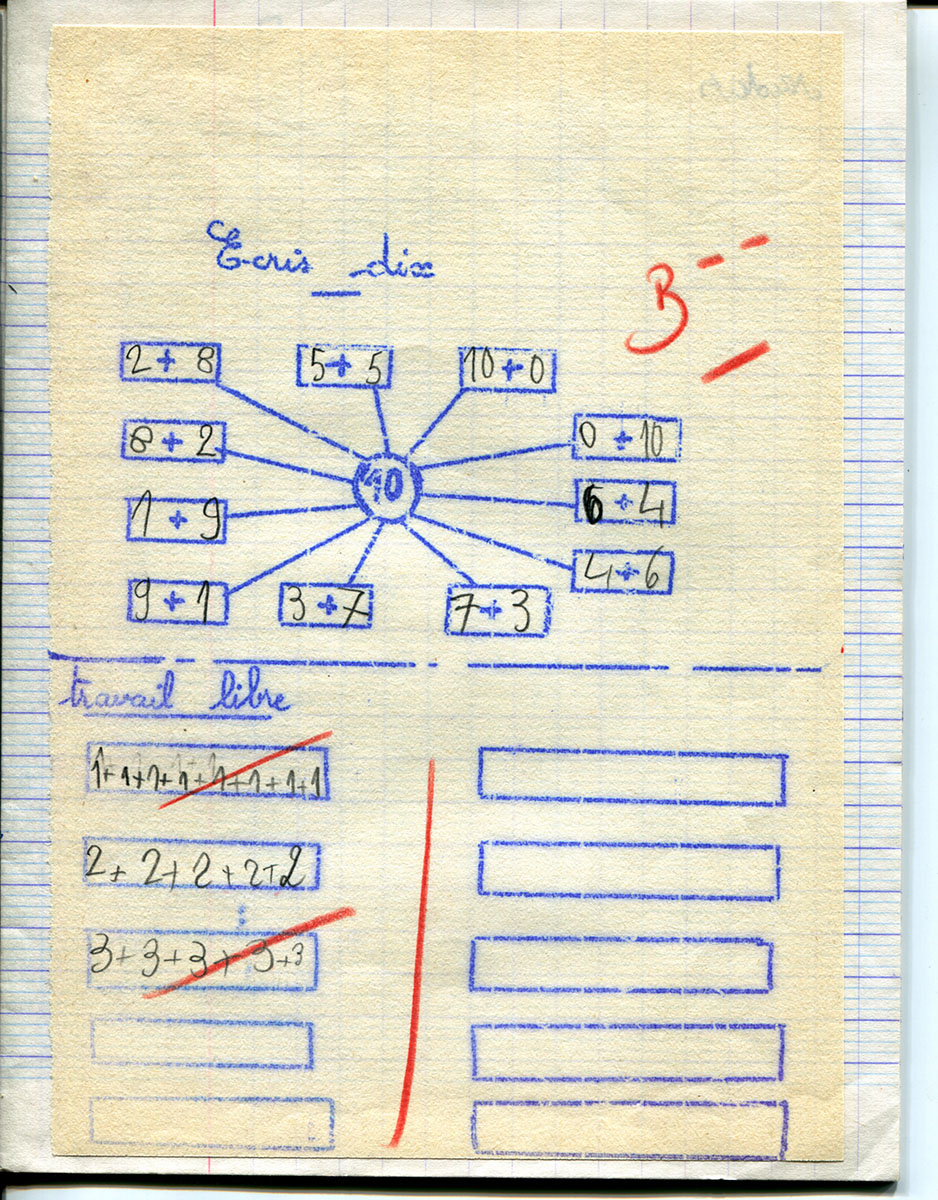 Ecris dix
B
2 + 8
5 + 5
10 + 0
8 + 2
0 + 10
10
1 + 9
6 + 4
9 + 1
3 + 7
7 + 3
4 + 6
travail libre
1+1+1+1+1+1+1+1+1
2+2+2+2+2
3+3+3+3+3